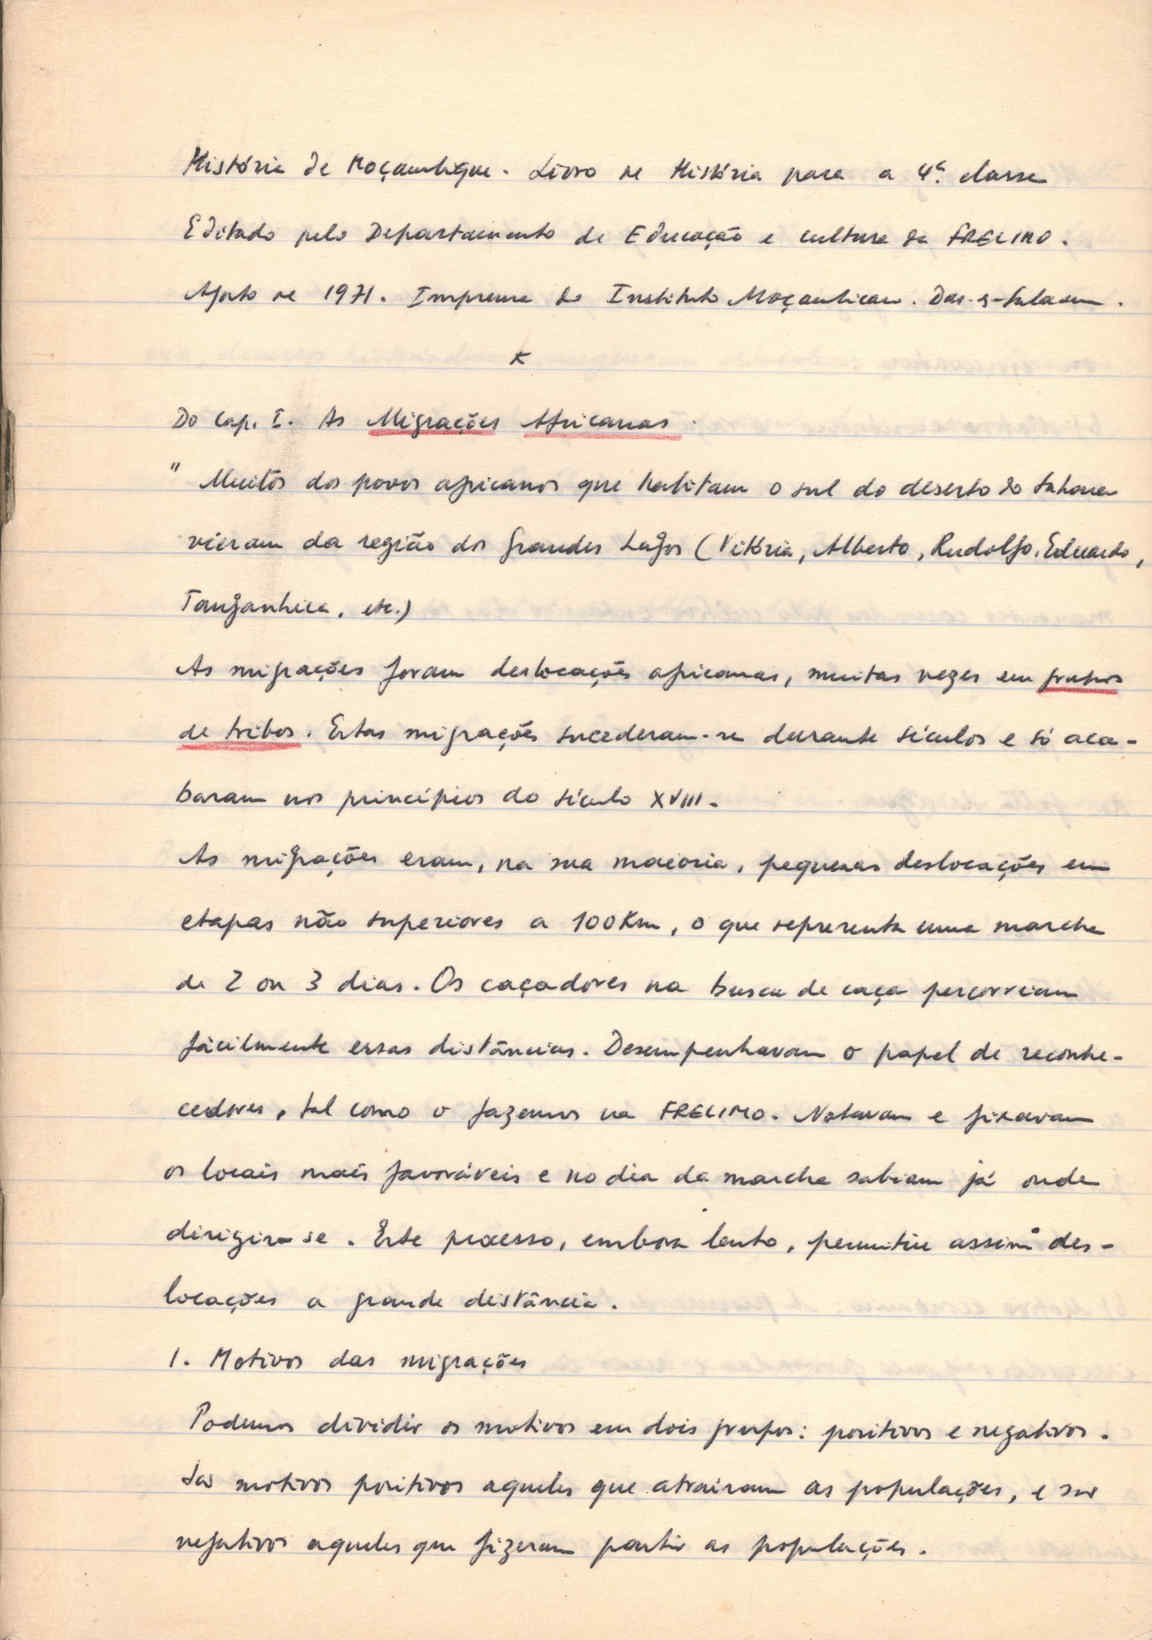 História de Moçambique. Livro de História para a 4ª classe
Editado pelo Departamento de Educação e cultura da FRELIMO.
Agosto de 1971. Imprensa do Instituto Moçambicano. Dar-es-Salaam.
*
Do Cap. I. As Migrações Africanas.
" Muitos dos povos africanos que habitam o sul do deserto do Sahara
vieram da região dos Grandes Lagos (Vitória, Alberto, Rudolfo, Eduardo,
Tanganhica, etc.)
As migrações foram deslocações africanas, muitas vezes em grupos
de tribos. Estas migrações sucederam-se durante séculos e só aca-
baram nos princípios do século XVIII.
As migrações eram, na sua maioria, pequenas deslocações em
etapas não superiores a 100Km, o que representa uma marcha
de 2 ou 3 dias. Os caçadores na busca de caça percorriam
fàcilmente essas distâncias. Desempenhavam o papel de reconhe-
cedores, tal como o fazemos na FRELIMO. Notavam e fixavam
os locais mais favoráveis e no dia da marcha sabiam já onde
dirigir-se. Este processo, embora lento, permitiu assim des-
locações a grande distância.
1. Motivos das migrações
Podemos dividir os motivos em dois grupos: positivos e negativos.
São motivos positivos aqueles que atrairam as populações, e são
negativos aqueles que fizeram partir as populações.